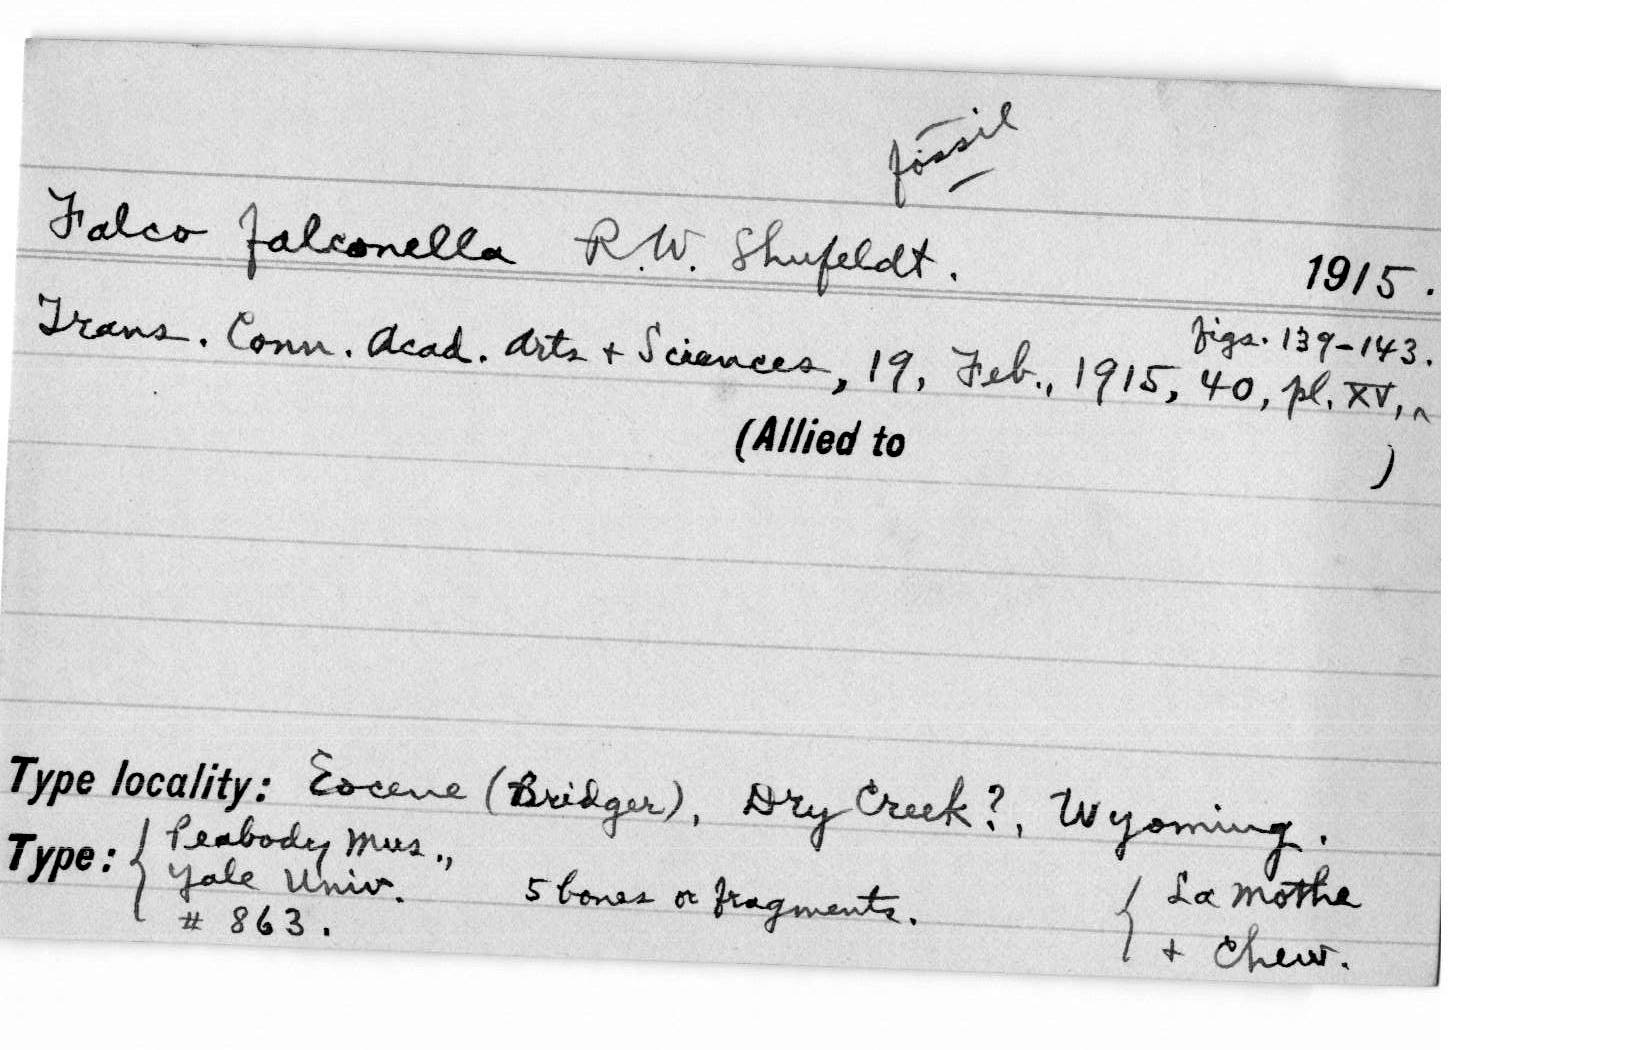 fossil
Falco falconella R.W. Shufeldt. 1915.
figs. 139-143.
Trans. Conn. Acad. Arts + Sciences, 19, Feb., 1915, 40, pl. XV, ^
(Allied to )
Type locality: Eocene (Bridger), Dry Creek?, Wyoming.
Type: { Peabody Mus.,
Yale Univ. 5 bones or fragments. { La Mothe
# 863. + Chew.